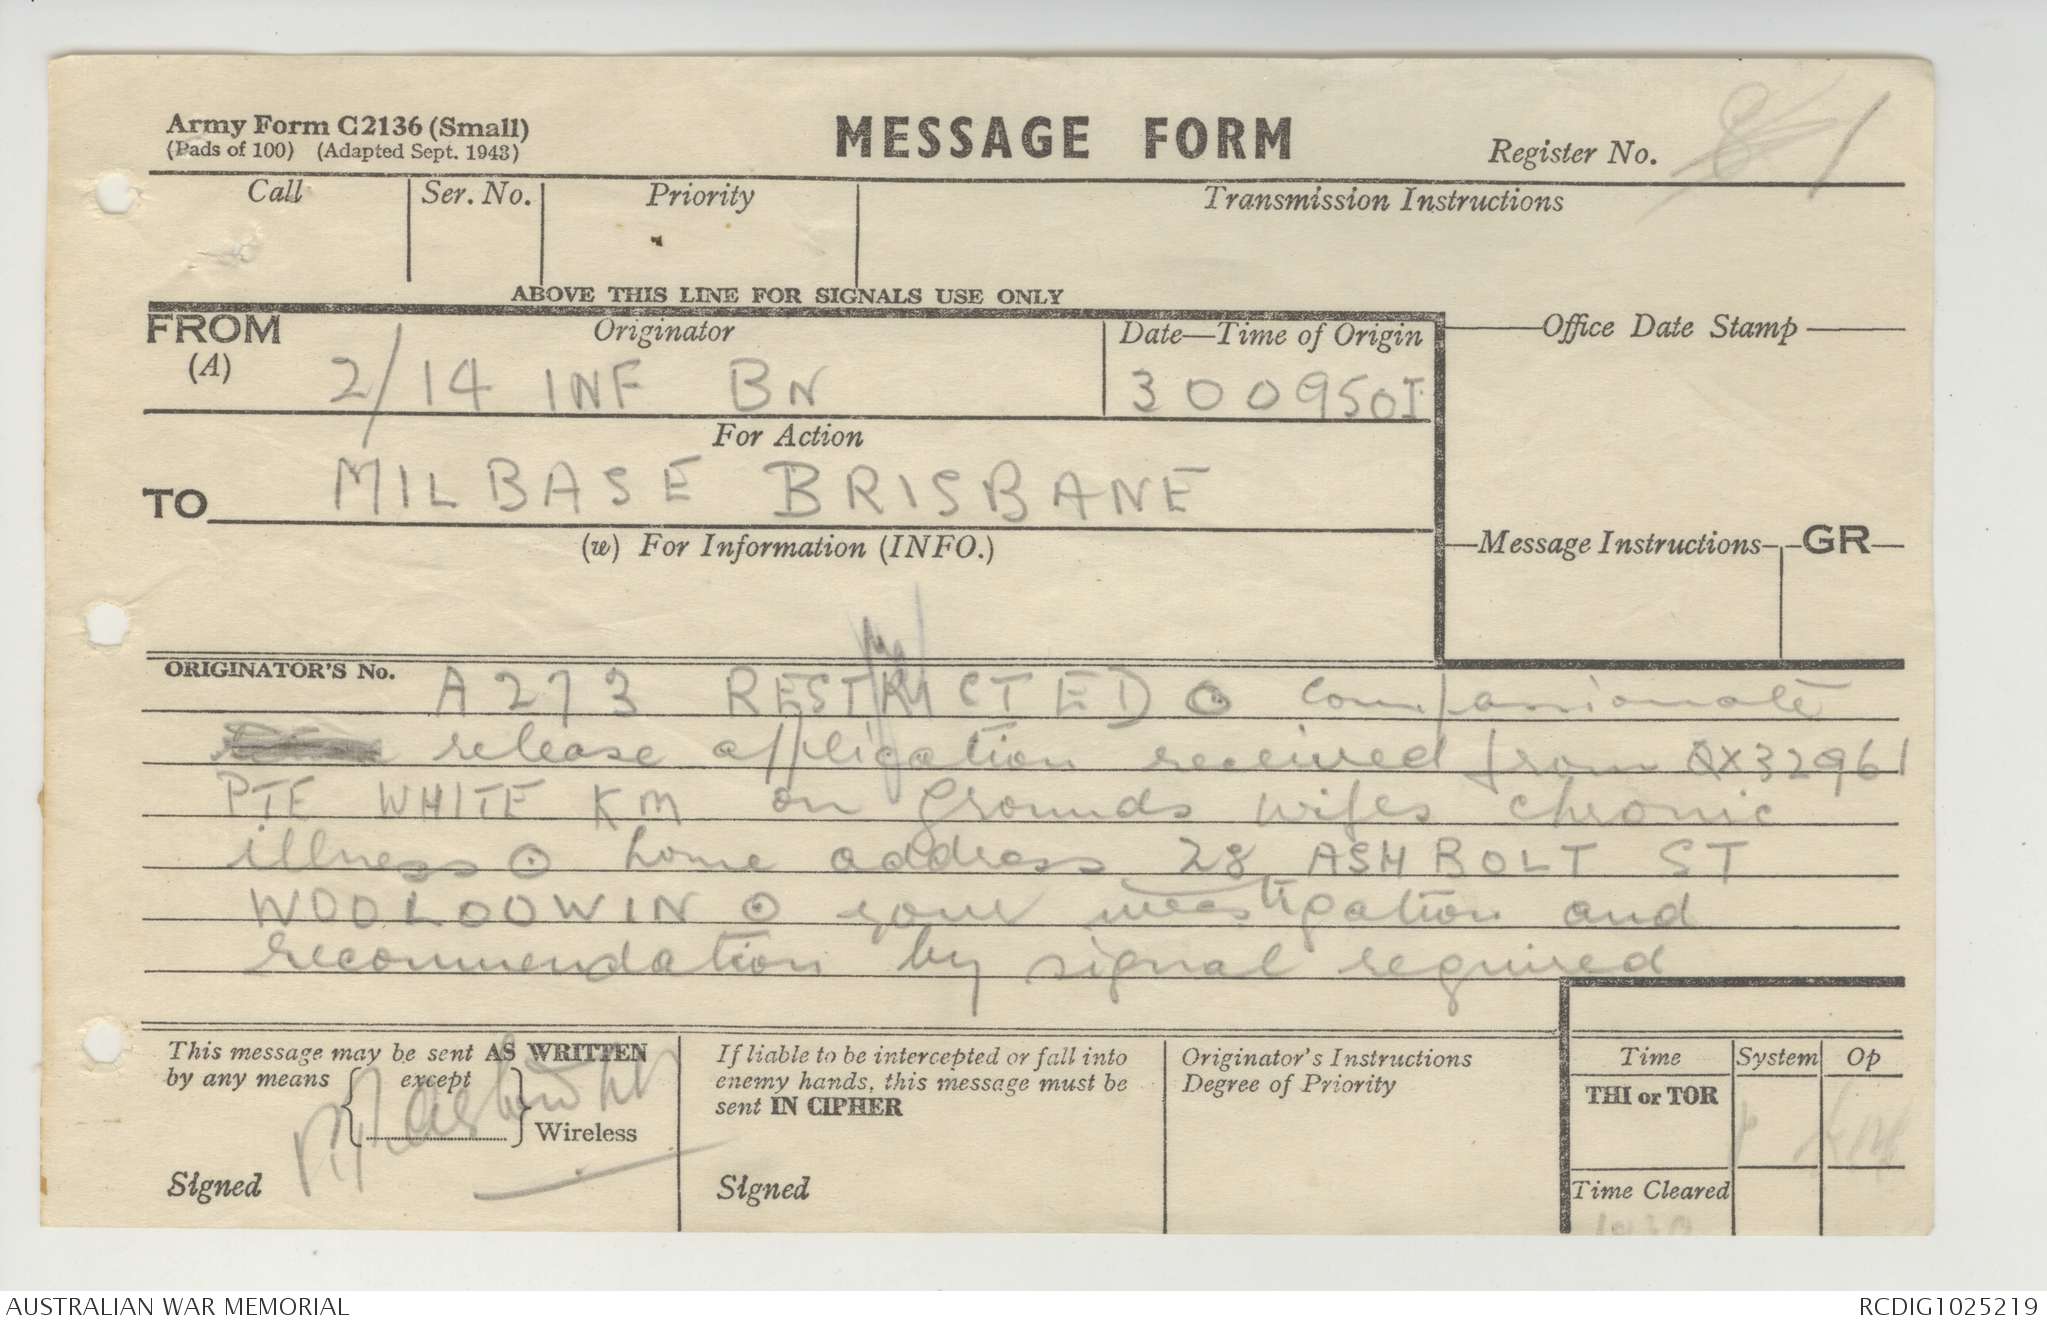 Army Form C2136 (Small)
(Pads of 100) (Adapted Sept. 1943)
MESSAGE FORM
Register No.
Call
Ser. No.
Priority
Transmission Instructions
ABOVE THIS LINE FOR SIGNALS USE ONLY
FROM
(A)
Originator
2/14 INF BN
Date—Time of Origin
300950I
Office Date Stamp
For Action
TO
MILBASE BRISBANE
(w) For Information (INFO.)
Message Instructions
GR
ORIGINATOR'S No.
A273 RESTRICTED ⊙ compassionate
release application received from QX32961
PTE WHITE KM on grounds wifes chronic
illness ⊙ home address 28 ASHBOLT ST
WOOLOOWIN ⊙ your investigation and
recommendation by signal required
This message may be sent AS WRITTEN
by any means
except
Wireless
Signed
If liable to be intercepted or fall into
enemy hands, this message must be
sent IN CIPHER
Signed
Originator's Instructions
Degree of Priority
Time
System
Op
THI or TOR
Time Cleared
AUSTRALIAN WAR MEMORIAL
RCDIG1025219